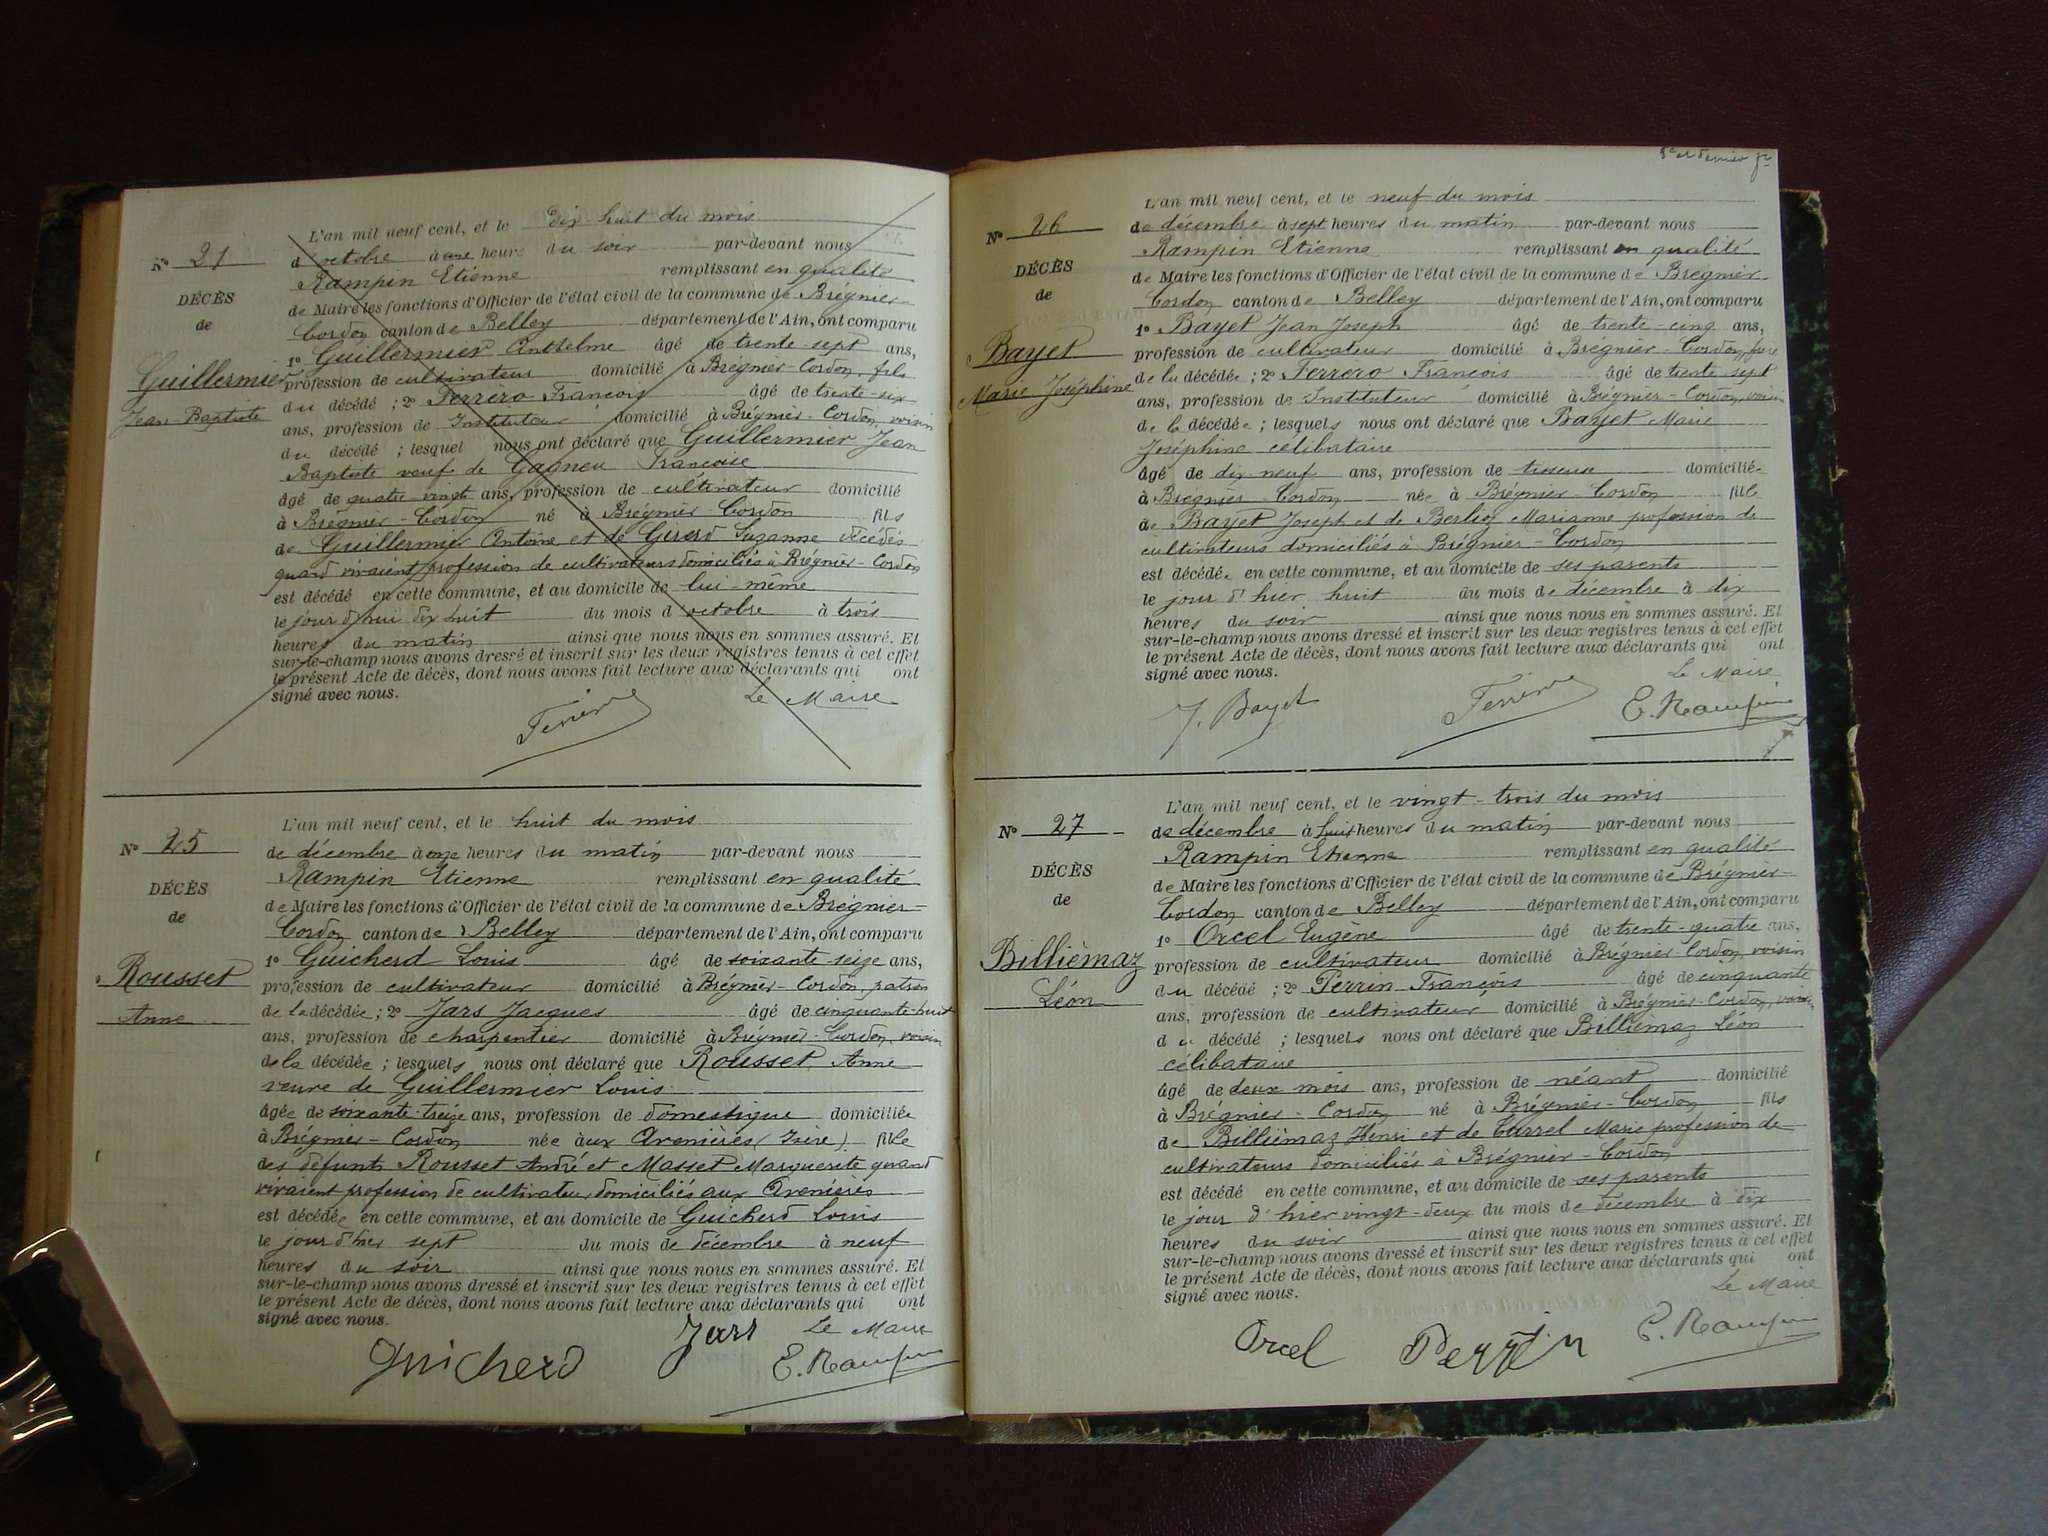 L'an mil neuf cent, et le dix huit du mois
N° 21 d'octobre à une heure du soir par-devant nous
Rampin Etienne remplissant en qualité
DÉCÈS de Maire les fonctions d'Officier de l'état civil de la commune de Brégnier-
de Cordon canton de Belley département de l'Ain, ont comparu
1° Guillermier Anthelme âgé de trente-sept ans,
Guillermier profession de cultivateur domicilié à Brégnier-Cordon, fils
Jean-Baptiste du décédé ; 2° Ferrero François âgé de trente-six
ans, profession de Instituteur domicilié à Brégnier-Cordon, voisin
du décédé ; lesquel nous ont déclaré que Guillermier Jean
Baptiste veuf de Gagneu Françoise
âgé de quatre-vingt ans, profession de cultivateur domicilié
à Brégnier-Cordon né à Brégnier-Cordon fils
de Guillermier Antoine et de Girerd Suzanne décédés
quand vivaient profession de cultivateurs domiciliés à Brégnier-Cordon
est décédé en cette commune, et au domicile de lui-même
le jour d'hui dix huit du mois d'octobre à trois
heures du matin ainsi que nous nous en sommes assuré. Et
sur-le-champ nous avons dressé et inscrit sur les deux registres tenus à cet effet
le présent Acte de décès, dont nous avons fait lecture aux déclarants qui ont
signé avec nous. Le Maire
Ferrero
L'an mil neuf cent, et le huit du mois
N° 25 de décembre à onze heures du matin par-devant nous
Rampin Etienne remplissant en qualité
DÉCÈS de Maire les fonctions d'Officier de l'état civil de la commune de Brégnier-
de Cordon canton de Belley département de l'Ain, ont comparu
1° Guicherd Louis âgé de soixante-seize ans,
Rousset profession de cultivateur domicilié à Brégnier-Cordon, patron
Anne de la décédée ; 2° Jars Jacques âgé de cinquante-huit
ans, profession de charpentier domicilié à Brégnier-Cordon, voisin
de la décédée ; lesquels nous ont déclaré que Rousset Anne
veuve de Guillermier Louis
âgée de soixante-treize ans, profession de domestique domiciliée
à Brégnier-Cordon née aux Avenières (Isère) fille
des défunts Rousset André et Masset Marguerite quand
vivaient profession de cultivateur, domiciliés aux Avenières
est décédée en cette commune, et au domicile de Guicherd Louis
le jour d'hier sept du mois de décembre à neuf
heures du soir ainsi que nous nous en sommes assuré. Et
sur-le-champ nous avons dressé et inscrit sur les deux registres tenus à cet effet
le présent Acte de décès, dont nous avons fait lecture aux déclarants qui ont
signé avec nous.
Guicherd Jars Le Maire
E. Rampin
8e et dernier
L'an mil neuf cent, et le neuf du mois
N° 26 de décembre à sept heures du matin par-devant nous
Rampin Etienne remplissant en qualité
DÉCÈS de Maire les fonctions d'Officier de l'état civil de la commune de Brégnier-
de Cordon canton de Belley département de l'Ain, ont comparu
1° Bayet Jean Joseph âgé de trente-cinq ans,
Bayet profession de cultivateur domicilié à Brégnier-Cordon,
Marie Joséphine de la décédée ; 2° Ferrero François âgé de trente sept
ans, profession de Instituteur domicilié à Brégnier-Cordon, voisin
de la décédée ; lesquels nous ont déclaré que Bayet Marie
Joséphine célibataire
âgé de dix-neuf ans, profession de tisseuse domiciliée
à Brégnier-Cordon née à Brégnier-Cordon fille
de Bayet Joseph et de Berlioz Marianne profession de
cultivateurs domiciliés à Brégnier-Cordon
est décédée en cette commune, et au domicile de ses parents
le jour d'hier huit du mois de décembre à dix
heures du soir ainsi que nous nous en sommes assuré. Et
sur-le-champ nous avons dressé et inscrit sur les deux registres tenus à cet effet
le présent Acte de décès, dont nous avons fait lecture aux déclarants qui ont
signé avec nous. Le Maire
J. Bayet Ferrero E. Rampin
L'an mil neuf cent, et le vingt-trois du mois
N° 27 de décembre à huit heures du matin par-devant nous
Rampin Etienne remplissant en qualité
DÉCÈS de Maire les fonctions d'Officier de l'état civil de la commune de Brégnier-
de Cordon canton de Belley département de l'Ain, ont comparu
1° Orcel Eugène âgé de trente-quatre ans,
Billiémaz profession de cultivateur domicilié à Brégnier-Cordon, voisin
Léon du décédé ; 2° Perrin François âgé de cinquante
ans, profession de cultivateur domicilié à Brégnier-Cordon, voisin
du décédé ; lesquels nous ont déclaré que Billiémaz Léon
célibataire
âgé de deux mois ans, profession de néant domicilié
à Brégnier-Cordon né à Brégnier-Cordon fils
de Billiémaz Henri et de Currel Marie profession de
cultivateurs domiciliés à Brégnier-Cordon
est décédé en cette commune, et au domicile de ses parents
le jour d'hier vingt-deux du mois de décembre à dix
heures du soir ainsi que nous nous en sommes assuré. Et
sur-le-champ nous avons dressé et inscrit sur les deux registres tenus à cet effet
le présent Acte de décès, dont nous avons fait lecture aux déclarants qui ont
signé avec nous. Le Maire
Orcel Perrin E. Rampin